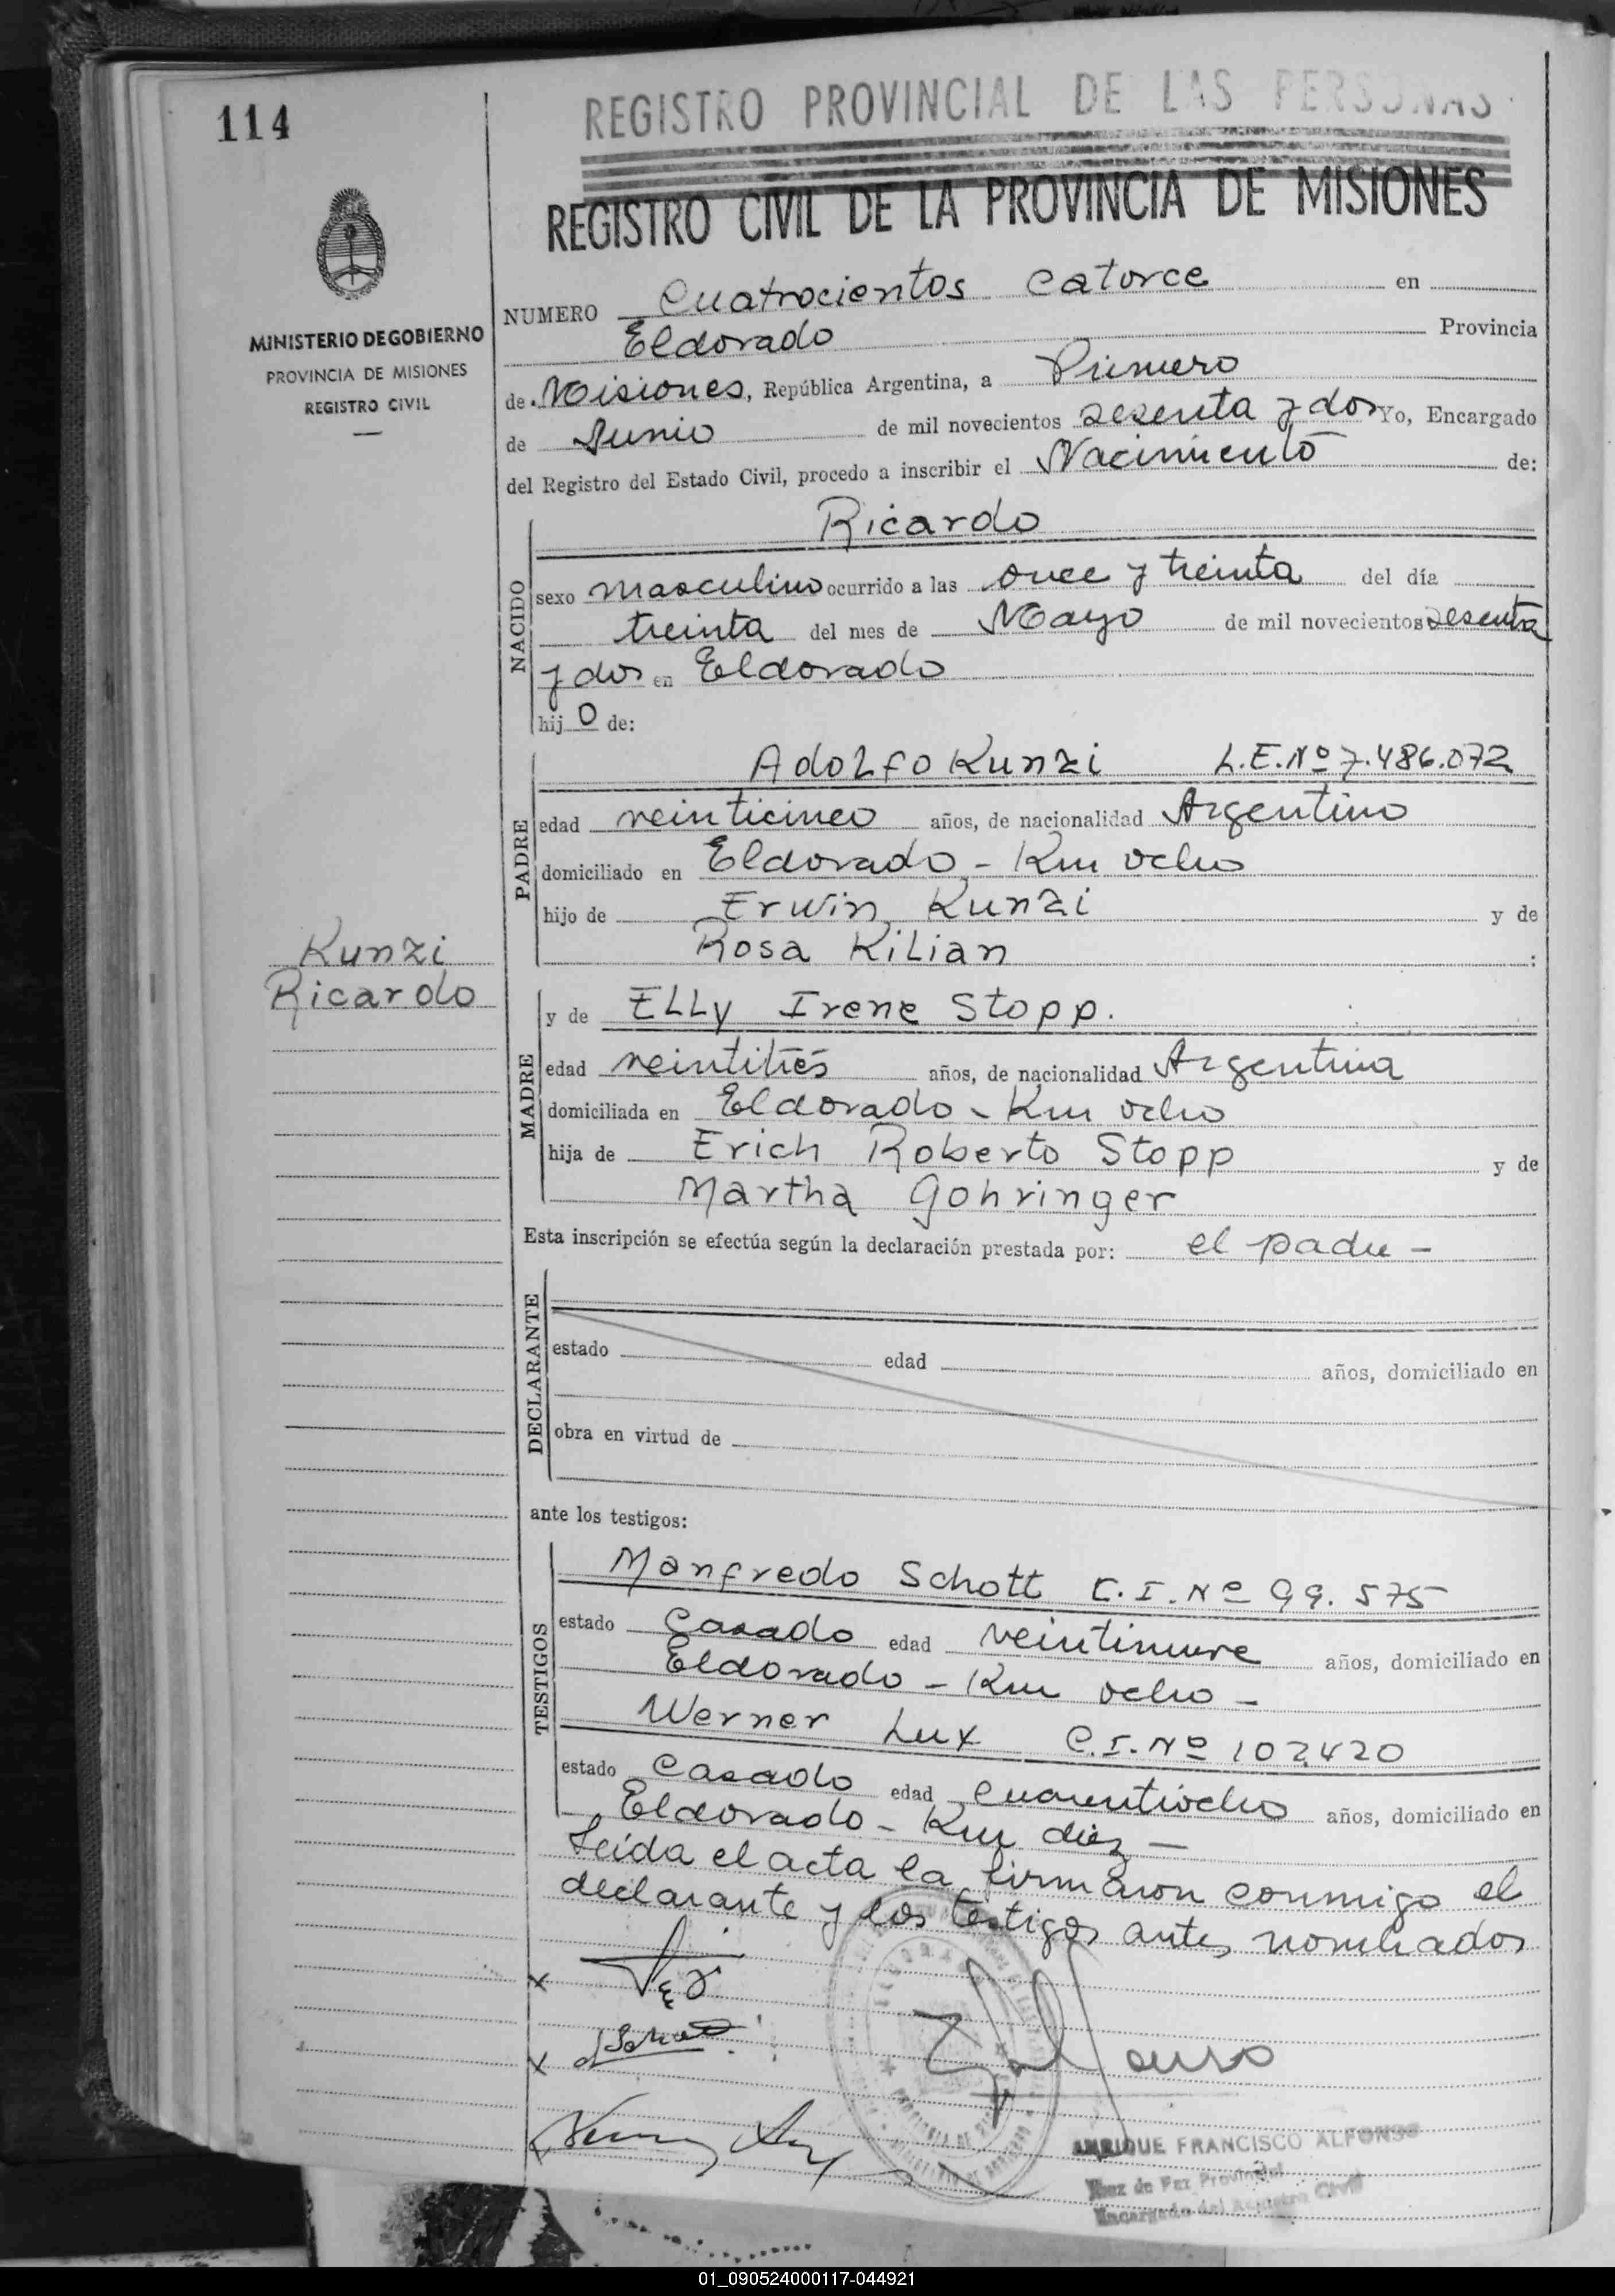 114
REGISTRO PROVINCIAL DE LAS PERSONAS
REGISTRO CIVIL DE LA PROVINCIA DE MISIONES
MINISTERIO DE GOBIERNO
PROVINCIA DE MISIONES
REGISTRO CIVIL
NUMERO Cuatrocientos Catorce en
Eldorado Provincia
de Misiones, República Argentina, a Primero
de Junio de mil novecientos sesenta y dos Yo, Encargado
del Registro del Estado Civil, procedo a inscribir el Nacimiento de:
NACIDO
Ricardo
sexo masculino ocurrido a las once y treinta del día
treinta del mes de Mayo de mil novecientos sesenta
y dos en Eldorado
hij o de:
PADRE
Adolfo Kunzi L.E.Nº 7.486.072
edad veinticinco años, de nacionalidad Argentino
domiciliado en Eldorado - Km ocho
hijo de Erwin Kunzi y de
Rosa Kilian :
Kunzi
Ricardo
MADRE
y de Elly Irene Stopp.
edad veintitrés años, de nacionalidad Argentina
domiciliada en Eldorado - Km ocho
hija de Erich Roberto Stopp y de
Martha Gohringer
Esta inscripción se efectúa según la declaración prestada por: el padre -
DECLARANTE
estado edad años, domiciliado en
obra en virtud de
ante los testigos:
TESTIGOS
Manfredo Schott C.I.Nº 99.575
estado Casado edad veintinueve años, domiciliado en
Eldorado - Km ocho -
Werner Lux C.I.Nº 102.420
estado Casado edad cuarentiocho años, domiciliado en
Eldorado - Km diez -
Leída el acta la firmaron conmigo el
declarante y los testigos antes nombrados
ENRIQUE FRANCISCO ALFONSO
Juez de Paz Provincial
Encargado del Registro Civil
01_090524000117-044921